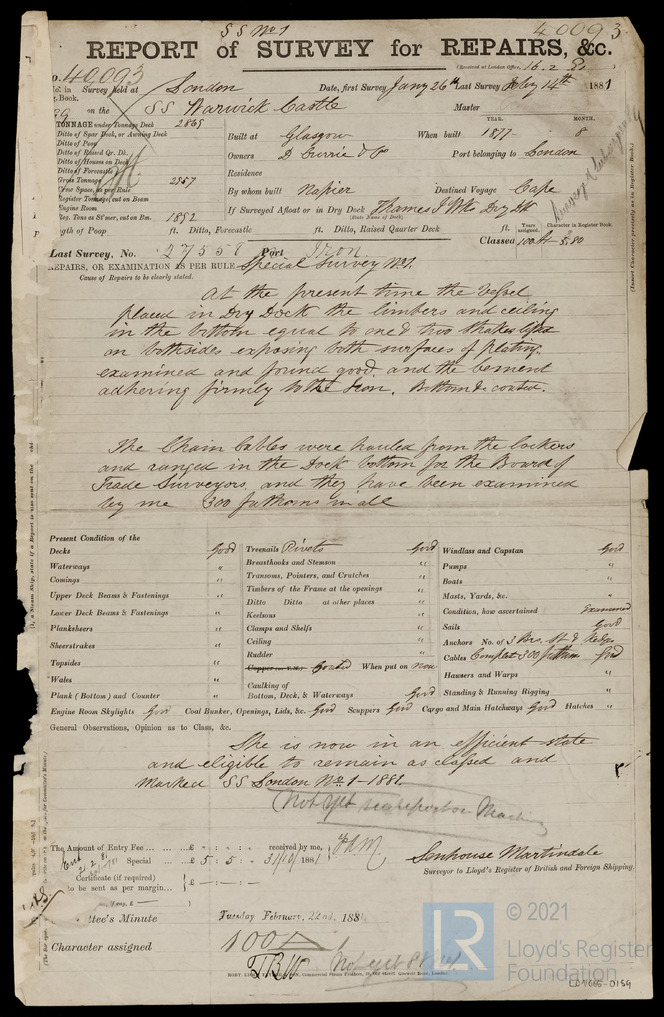 SS No 1
40093
REPORT of SURVEY for REPAIRS, &c.
(Received at London Office, 16.2.81
No. 40093
Survey held at London Date, first Survey Jany 26th Last Survey Feby 14th 1881
Book.
on the SS Warwick Castle Master
TONNAGE under Tonnage Deck 2869
Ditto of Spar Deck, or Awning Deck
Ditto of Poop
Ditto of Raised Qr. Dk.
Ditto of Houses on Deck
Ditto of Forecastle
Gross Tonnage 2957
Crew Space, as per Rule
Register Tonnage, cut on Beam
Engine Room
Reg. Tons as Stmr, cut on Bm. 1892
YEAR. MONTH.
Built at Glasgow When built 1877 8
Owners D Currie & Co Port belonging to London
Residence
By whom built Napier Destined Voyage Cape
If Surveyed Afloat or in Dry Dock Thames I Wks Dry Dk
(State Name of Dock)
Length of Poop ft. Ditto, Forecastle ft. Ditto, Raised Quarter Deck ft.
Years assigned. Character in Register Book.
Classed 100 A 5,80
(Insert Character precisely as in Register Book.)
Last Survey, No. 27558 Port Iron
REPAIRS, OR EXAMINATION AS PER RULE Special Survey No 1.
Cause of Repairs to be clearly stated.
At the present time the Vessel
placed in Dry Dock the limbers and ceiling
in the bottom equal to one & two strakes lifted
on bothsides exposing both surfaces of plating,
examined and found good, and the cement
adhering firmly to the Iron. Bottom re coated.
The Chain Cables were hauled from the lockers
and ranged in the Dock bottom for the Board of
Trade Surveyors, and they have been examined
by me 300 fathoms in all
Present Condition of the
Decks Good
Waterways "
Comings "
Upper Deck Beams & Fastenings "
Lower Deck Beams & Fastenings "
Planksheers "
Sheerstrakes "
Topsides "
Wales "
Plank (Bottom) and Counter "
Treenails Rivets Good
Breasthooks and Stemson "
Transoms, Pointers, and Crutches "
Timbers of the Frame at the openings "
Ditto Ditto at other places "
Keelsons "
Clamps and Shelfs "
Ceiling "
Rudder "
Copper (or Y.M.) Coated When put on now
Caulking of
Bottom, Deck, & Waterways Good
Windlass and Capstan Good
Pumps "
Boats "
Masts, Yards, &c. "
Condition, how ascertained Examined
Sails Good
Anchors No. of 3 Bro. St & Kedge
Cables Complet 300 fathom Good
Hawsers and Warps "
Standing & Running Rigging "
Engine Room Skylights Good Coal Bunker, Openings, Lids, &c. Good Scuppers Good Cargo and Main Hatchways Good Hatches "
General Observations, Opinion as to Class, &c.
She is now in an efficient state
and eligible to remain as classed and
Marked SS London No 1-1881.
Not yet
The Amount of Entry Fee ... ... £ : : received by me,
Special ... ... £ 5 : 5 : 1881
Certificate (if required) £ — : — :
to be sent as per margin...
Senhouse Martindale
Surveyor to Lloyd's Register of British and Foreign Shipping.
Committee's Minute Tuesday February, 22nd. 1881.
Character assigned 100A
Not yet
© 2021
LR
Lloyd's Register
Foundation
LON665-0159